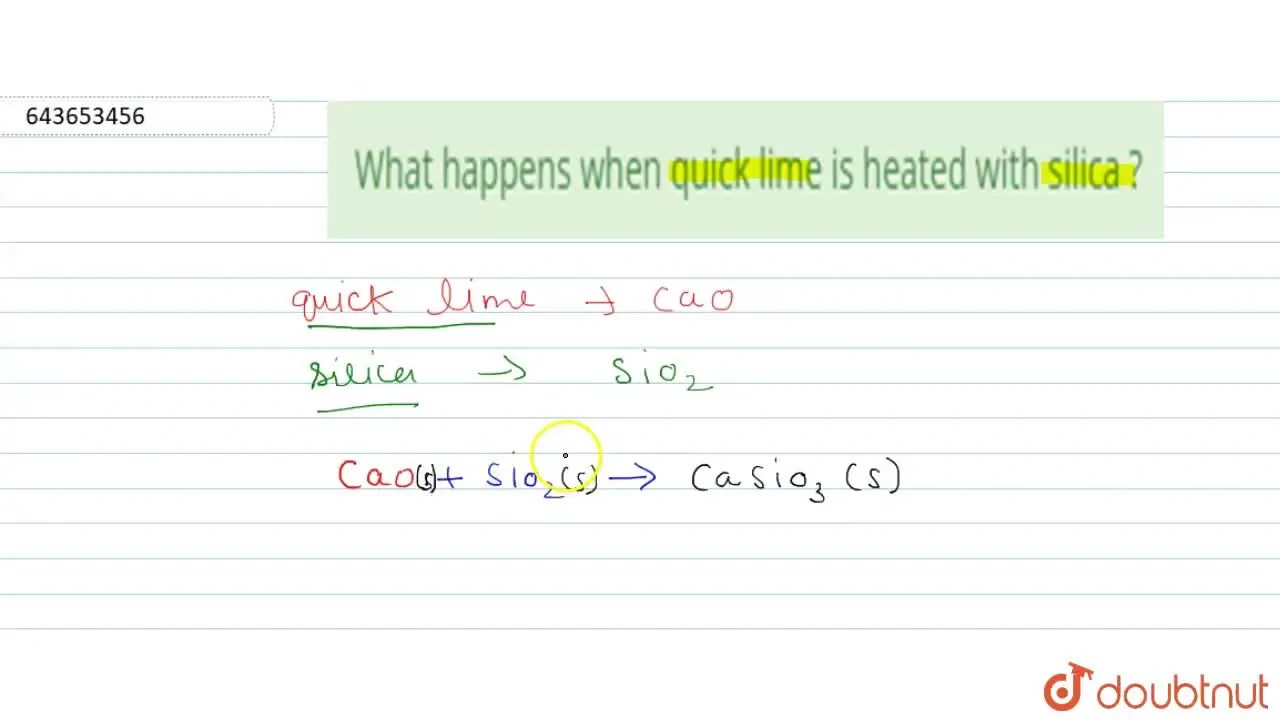 643653456
What happens when quick lime is heated with silica ?
quick lime → CaO
silica → SiO₂
CaO(s) + SiO₂(s) → CaSiO₃(s)
doubtnut